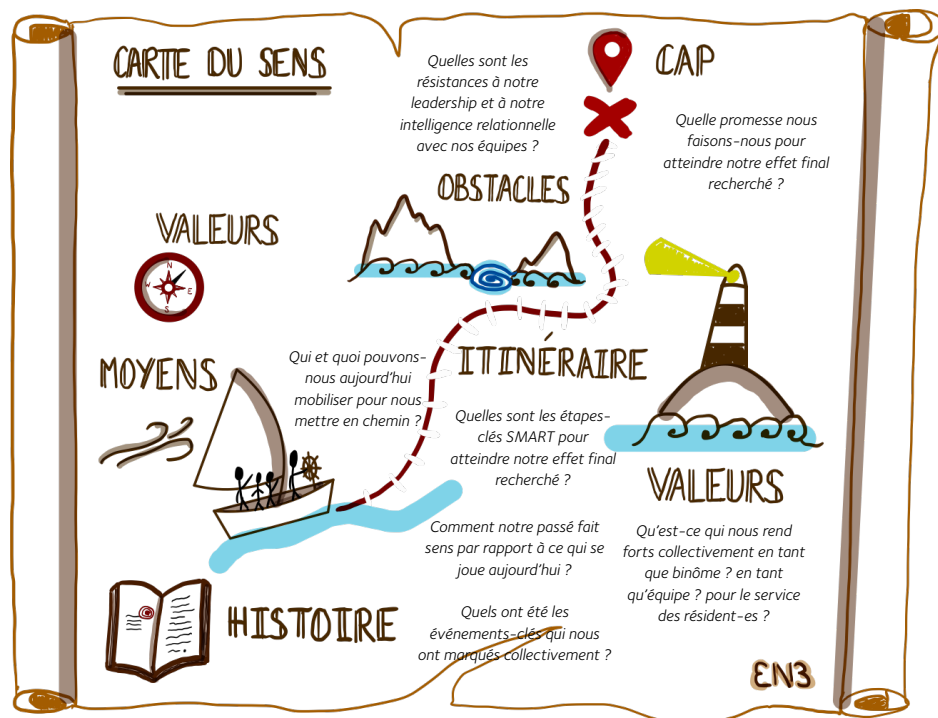 CARTE DU SENS
Quelles sont les
résistances à notre
leadership et à notre
intelligence relationnelle
avec nos équipes ?
CAP
Quelle promesse nous
faisons-nous pour
atteindre notre effet final
recherché ?
OBSTACLES
VALEURS
N
W
E
S
MOYENS
Qui et quoi pouvons-
nous aujourd'hui
mobiliser pour nous
mettre en chemin ?
ITINÉRAIRE
Quelles sont les étapes-
clés SMART pour
atteindre notre effet final
recherché ?
VALEURS
Qu'est-ce qui nous rend
forts collectivement en tant
que binôme ? en tant
qu'équipe ? pour le service
des résident-es ?
Comment notre passé fait
sens par rapport à ce qui se
joue aujourd'hui ?
HISTOIRE
Quels ont été les
événements-clés qui nous
ont marqués collectivement ?
EN3